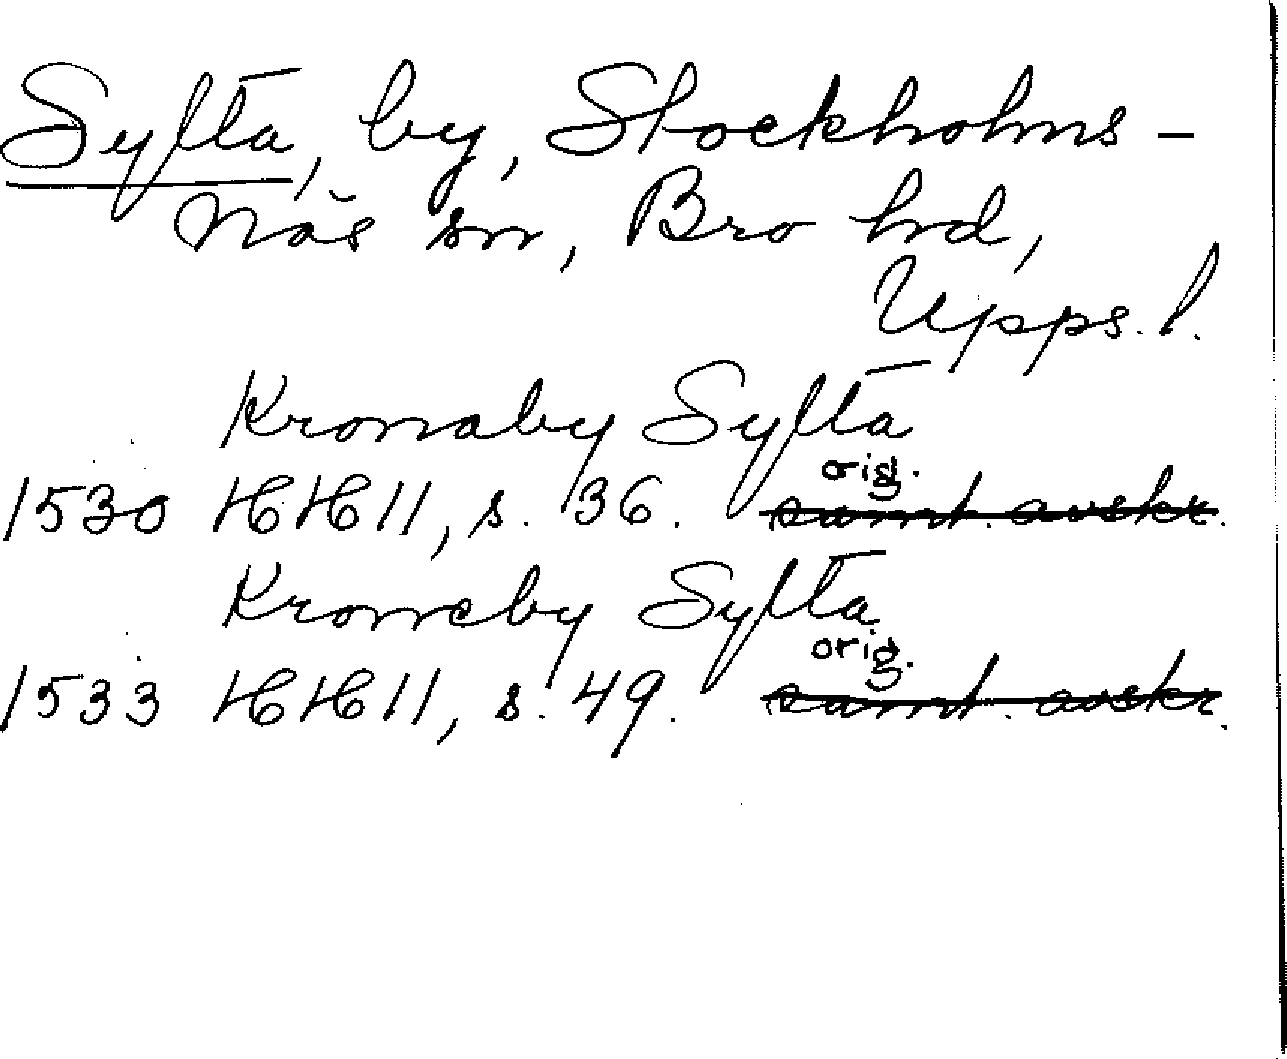 Sylta, by, Stockholms-
Näs sn, Bro hd,
Upps. l.
Kronaby Sylta
1530 HH 11, s. 136. orig. samt. avskr.
Kroneby Sylta
1533 HH 11, s. 49. orig. samt. avskr.